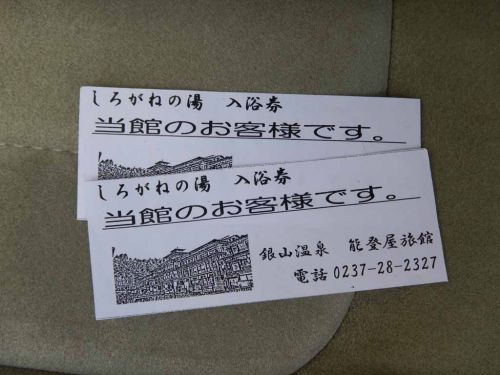 しろがねの湯 入浴券
当館のお客様です。
しろがねの湯 入浴券
当館のお客様です。
銀山温泉 能登屋旅館
電話0237-28-2327